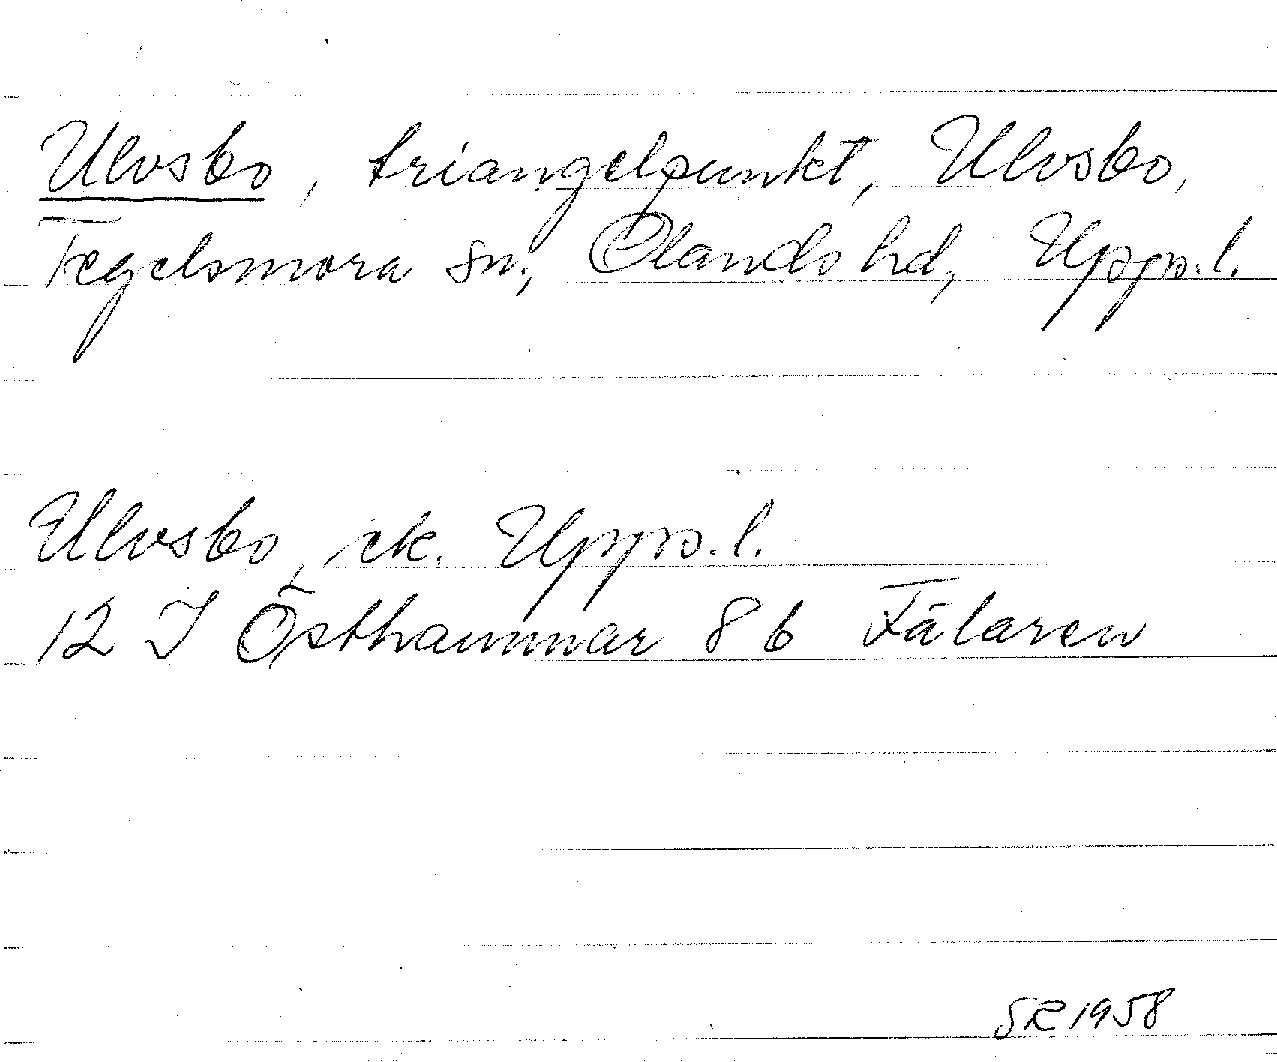 Ulvsbo, triangelpunkt, Ulvsbo,
Tegelsmora sn, Olands hd, Uppl.
Ulvsbo, ek. Uppl.
12 I Östhammar 8b Fälaren
SR 1958